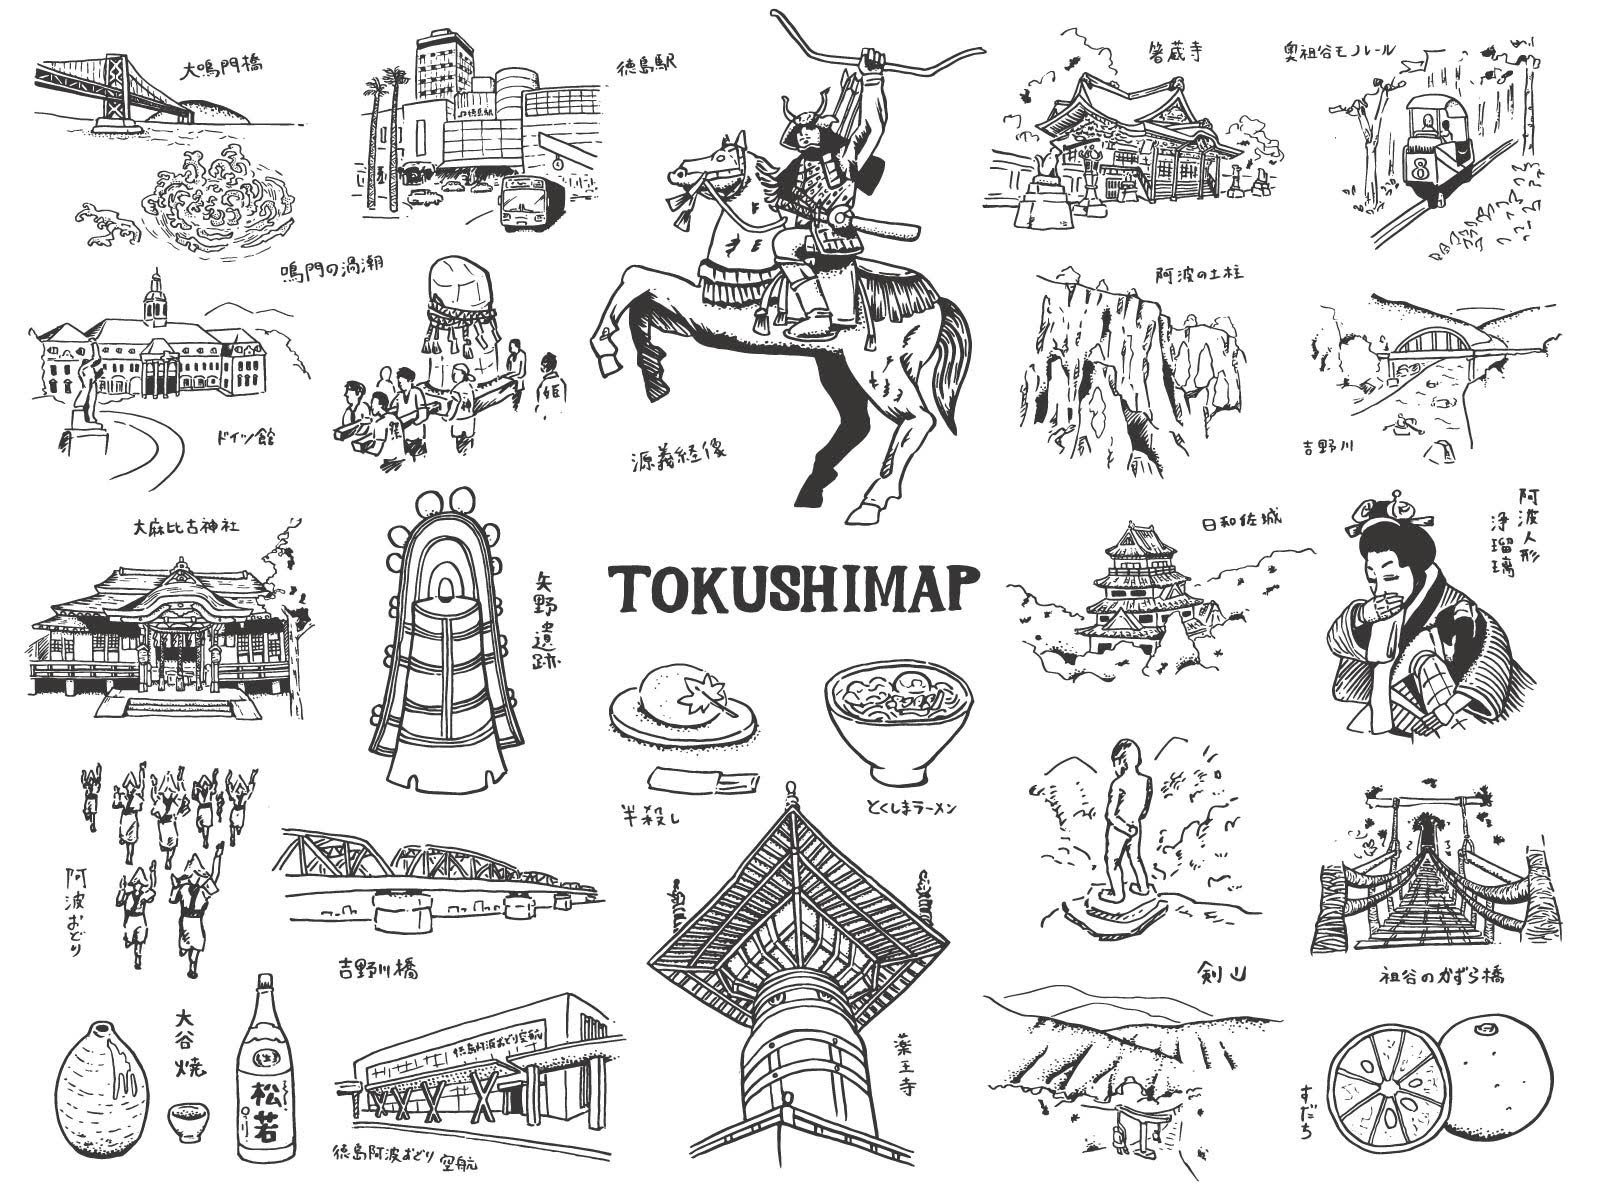 大鳴門橋
徳島駅
JR徳島駅
箸蔵寺
奥祖谷モノレール
8
鳴門の渦潮
阿波の土柱
ドイツ館
姫
神
源義経像
吉野川
大麻比古神社
矢野遺跡
TOKUSHIMAP
日和佐城
阿波人形
浄瑠璃
半殺し
とくしまラーメン
阿波おどり
吉野川橋
剣山
祖谷のかずら橋
大谷焼
松若
徳島阿波おどり空航
徳島阿波おどり空航
薬王寺
すだち